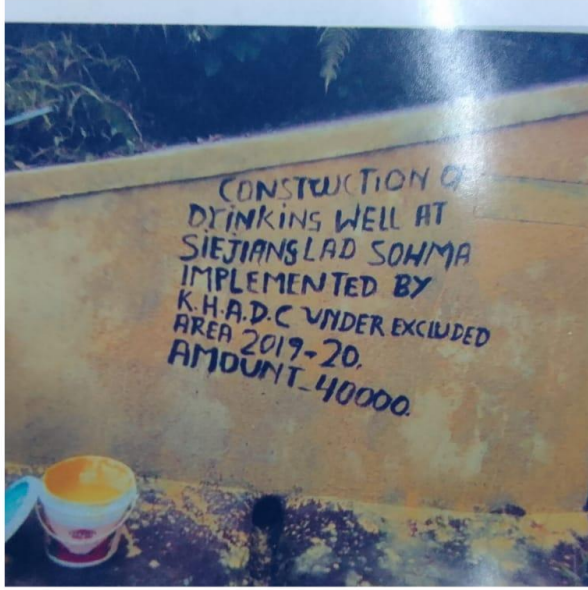 CONSTRUCTION OF
DRINKING WELL AT
SIEJIANGLAD SOHMA
IMPLEMENTED BY
K.H.A.D.C UNDER EXCLUDED
AREA 2019-20.
AMOUNT_40000.